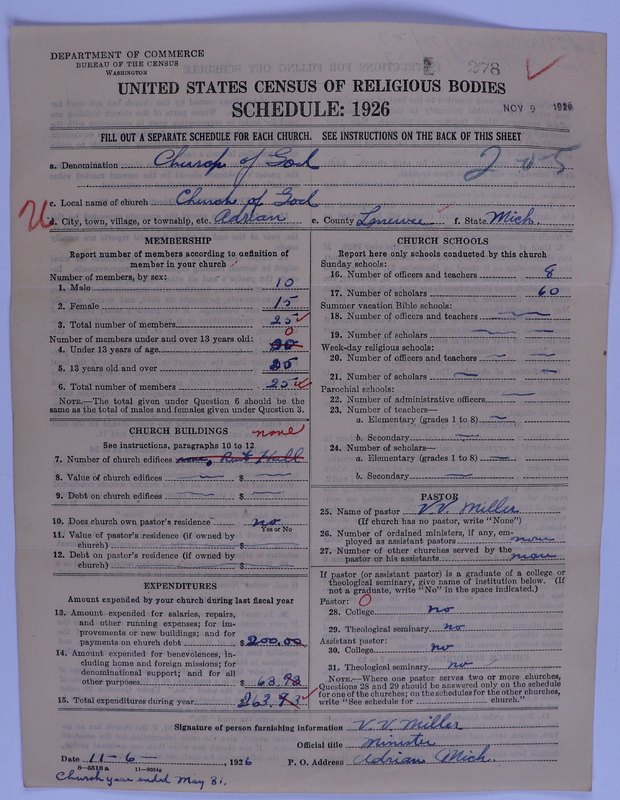 DEPARTMENT OF COMMERCE
BUREAU OF THE CENSUS
WASHINGTON
278
UNITED STATES CENSUS OF RELIGIOUS BODIES
SCHEDULE: 1926
NOV 9 1926
FILL OUT A SEPARATE SCHEDULE FOR EACH CHURCH. SEE INSTRUCTIONS ON THE BACK OF THIS SHEET
a. Denomination Church of God
2 w 5
c. Local name of church Church of God
d. City, town, village, or township, etc. Adrian e. County Lenawee f. State Mich.
MEMBERSHIP
Report number of members according to definition of
member in your church
Number of members, by sex:
1. Male 10
2. Female 15
3. Total number of members 25
Number of members under and over 13 years old:
4. Under 13 years of age 0
5. 13 years old and over 25
6. Total number of members 25
NOTE.—The total given under Question 6 should be
same as the total of males and females given under Question 3.
CHURCH BUILDINGS none
See instructions, paragraphs 10 to 12
7. Number of church edifices none, Rent Hall
8. Value of church edifices $
9. Debt on church edifices $
10. Does church own pastor's residence no
Yes or No
11. Value of pastor's residence (if owned by
church) $
12. Debt on pastor's residence (if owned by
church) $
EXPENDITURES
Amount expended by your church during last fiscal year
13. Amount expended for salaries, repairs,
and other running expenses; for im-
provements or new buildings; and for
payments on church debt $200.00
14. Amount expended for benevolences, in-
cluding home and foreign missions; for
denominational support; and for all
other purposes $ 63.93
15. Total expenditures during year $263.93
CHURCH SCHOOLS
Report here only schools conducted by this church
Sunday schools:
16. Number of officers and teachers 8
17. Number of scholars 60
Summer vacation Bible schools:
18. Number of officers and teachers
19. Number of scholars
Week-day religious schools:
20. Number of officers and teachers
21. Number of scholars
Parochial schools:
22. Number of administrative officers
23. Number of teachers—
a. Elementary (grades 1 to 8)
b. Secondary
24. Number of scholars—
a. Elementary (grades 1 to 8)
b. Secondary
PASTOR
25. Name of pastor V.V. Miller
(If church has no pastor, write "None")
26. Number of ordained ministers, if any, em-
ployed as assistant pastors none
27. Number of other churches served by the
pastor or his assistants none
If pastor (or assistant pastor) is a graduate of a college or
theological seminary, give name of institution below. (If
not a graduate, write "No" in the space indicated.)
Pastor: 0
28. College no
29. Theological seminary no
Assistant pastor:
30. College no
31. Theological seminary no
NOTE.—Where one pastor serves two or more churches,
Questions 28 and 29 should be answered only on the schedule
for one of the churches; on the schedules for the other churches,
write "See schedule for church."
Signature of person furnishing information V.V. Miller
Official title Minister
Date 11-6-, 1926 P. O. Address Adrian Mich.
8-5518a 11-9054c
Church year ended May 31.